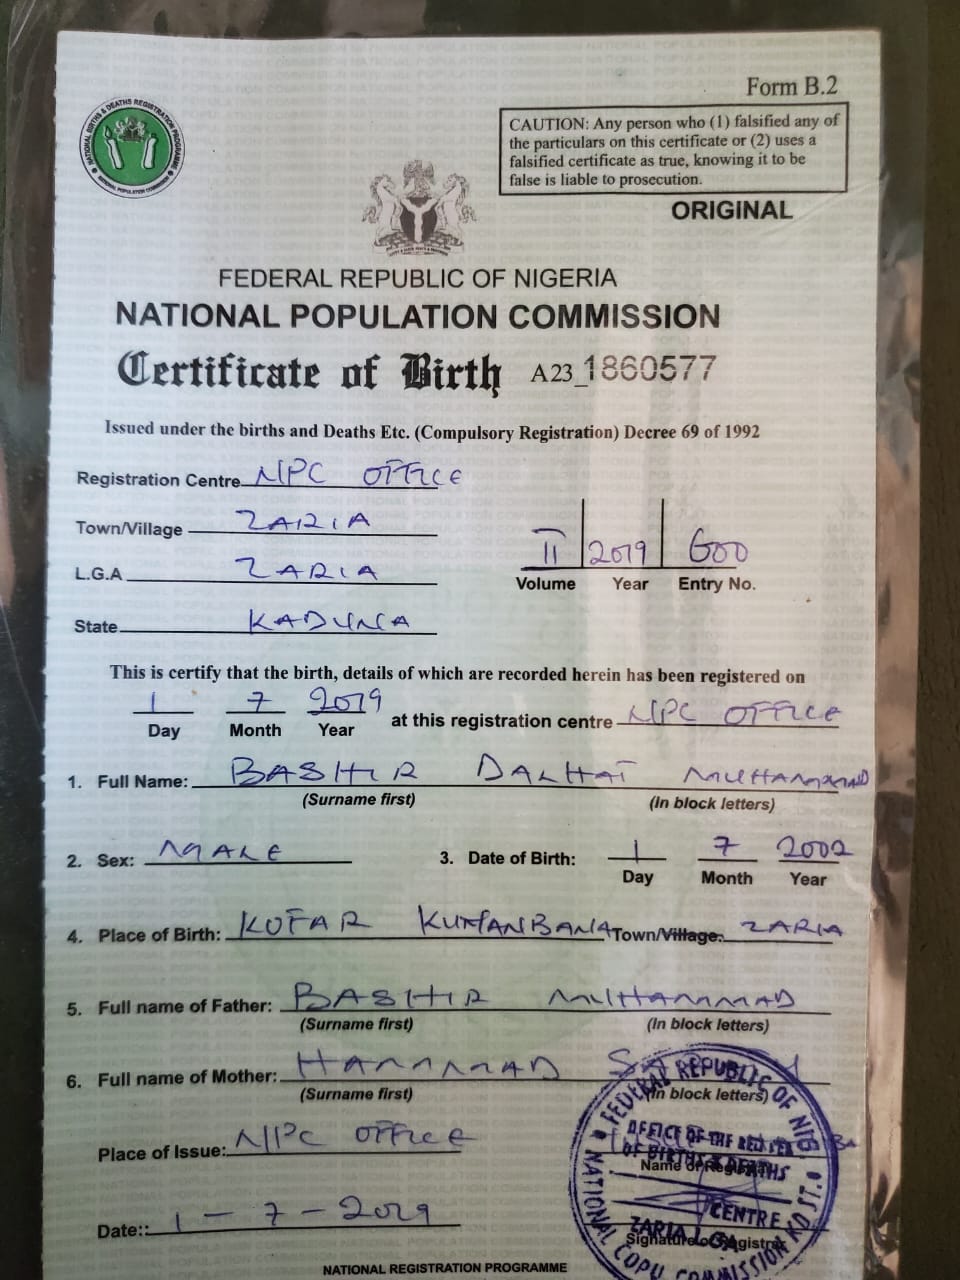 Form B.2
NATIONAL BIRTHS & DEATHS REGISTRATION PROGRAMME
NATIONAL POPULATION COMMISSION
CAUTION: Any person who (1) falsified any of
the particulars on this certificate or (2) uses a
falsified certificate as true, knowing it to be
false is liable to prosecution.
ORIGINAL
FEDERAL REPUBLIC OF NIGERIA
NATIONAL POPULATION COMMISSION
Certificate of Birth A23_1860577
Issued under the births and Deaths Etc. (Compulsory Registration) Decree 69 of 1992
Registration Centre NPC OFFICE
Town/Village ZARIA
L.G.A ZARIA
II 2019 600
Volume Year Entry No.
State KADUNA
This is certify that the birth, details of which are recorded herein has been registered on
1 7 2019 at this registration centre NPC OFFICE
Day Month Year
1. Full Name: BASHIR DALHAT MUHAMMAD
(Surname first) (In block letters)
2. Sex: MALE 3. Date of Birth: 1 7 2002
Day Month Year
4. Place of Birth: KOFAR KUYANBANA Town/Village: ZARIA
5. Full name of Father: BASHIR MUHAMMAD
(Surname first) (In block letters)
6. Full name of Mother: HAMMAD
(Surname first) (In block letters)
Place of Issue: NPC OFFICE
Name of Registrar
Date:: 1-7-2019
Signature of Registrar
FEDERAL REPUBLIC OF NIG
OFFICE OF THE
OF BIRTHS & DEATHS
CENTRE
ZARIA LGA
NATIONAL COMMISSION KD ST.
NATIONAL REGISTRATION PROGRAMME